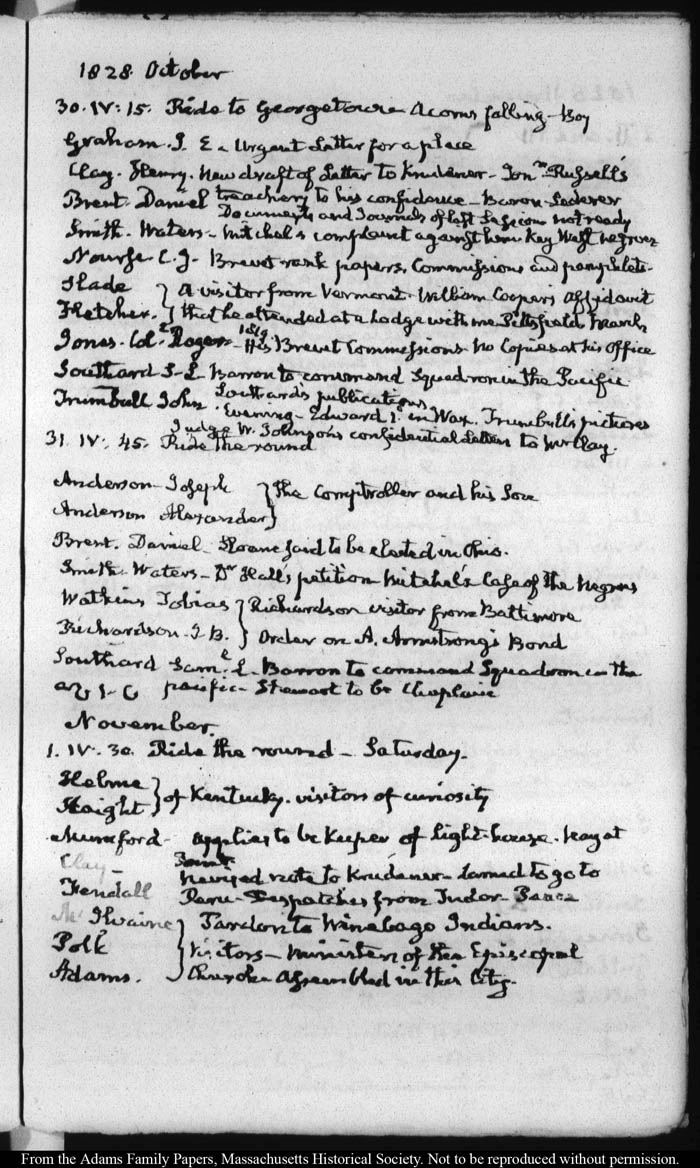 1828. October
30. IV: 15. Ride to Georgetown Acorns falling - Boy
Graham. J. E - Urgent Letter for a place
Clay. Henry. New draft of Letter to Krudener - Jonn. Russell's
Brent. Daniel treachery to his confidence - Baron Lederer
Documents and Journals of last Session not ready
Smith. Waters - Mitchel's complaint against him Key West negroes
Nourse C. J. Brevet rank papers, Commissions and pamphlets.
Slade } A visitor from Vermont. William Cooper's Affidavit
Fletcher. } that he attended at a Lodge with me Pittsfield March
1819
Jones. Col. Roger - His Brevet Commissions. No Copies at his Office
Southard S. L. Barron to command Squadron in the Pacific
Trumbull John. Southard's publications
Evening - Edward 1. in Wax. Trumbull's pictures
Judge W. Johnson's confidential Letters to Mr Clay.
31. IV: 45. Ride the round
Anderson Joseph } The Comptroller and his Son
Anderson Alexander }
Brent. Daniel - Sloane said to be elected in Ohio.
Smith. Waters - Dr Hall's petition Mitchel's Case of the Negroes
Watkins Tobias } Richardson visitor from Baltimore
Richardson - J. B. } Order on A. Armstrong's Bond
Southard Saml L. Barron to command Squadron in the
pacific - Stewart to be Chaplain
November.
1. IV. 30. Ride the round - Saturday.
Helme } of Kentucky. visitors of curiosity
Haight }
Mumford - applies to be Keeper of Light-house.
Clay -
revised note to Krudener - Larned to go to
Kendall Peru - Despatches from Tudor - Peace
McIlvaine } Pardon to Winebago Indians.
Polk } Visitors - Ministers of the Episcopal
Adams. } Church Assembled in this City.